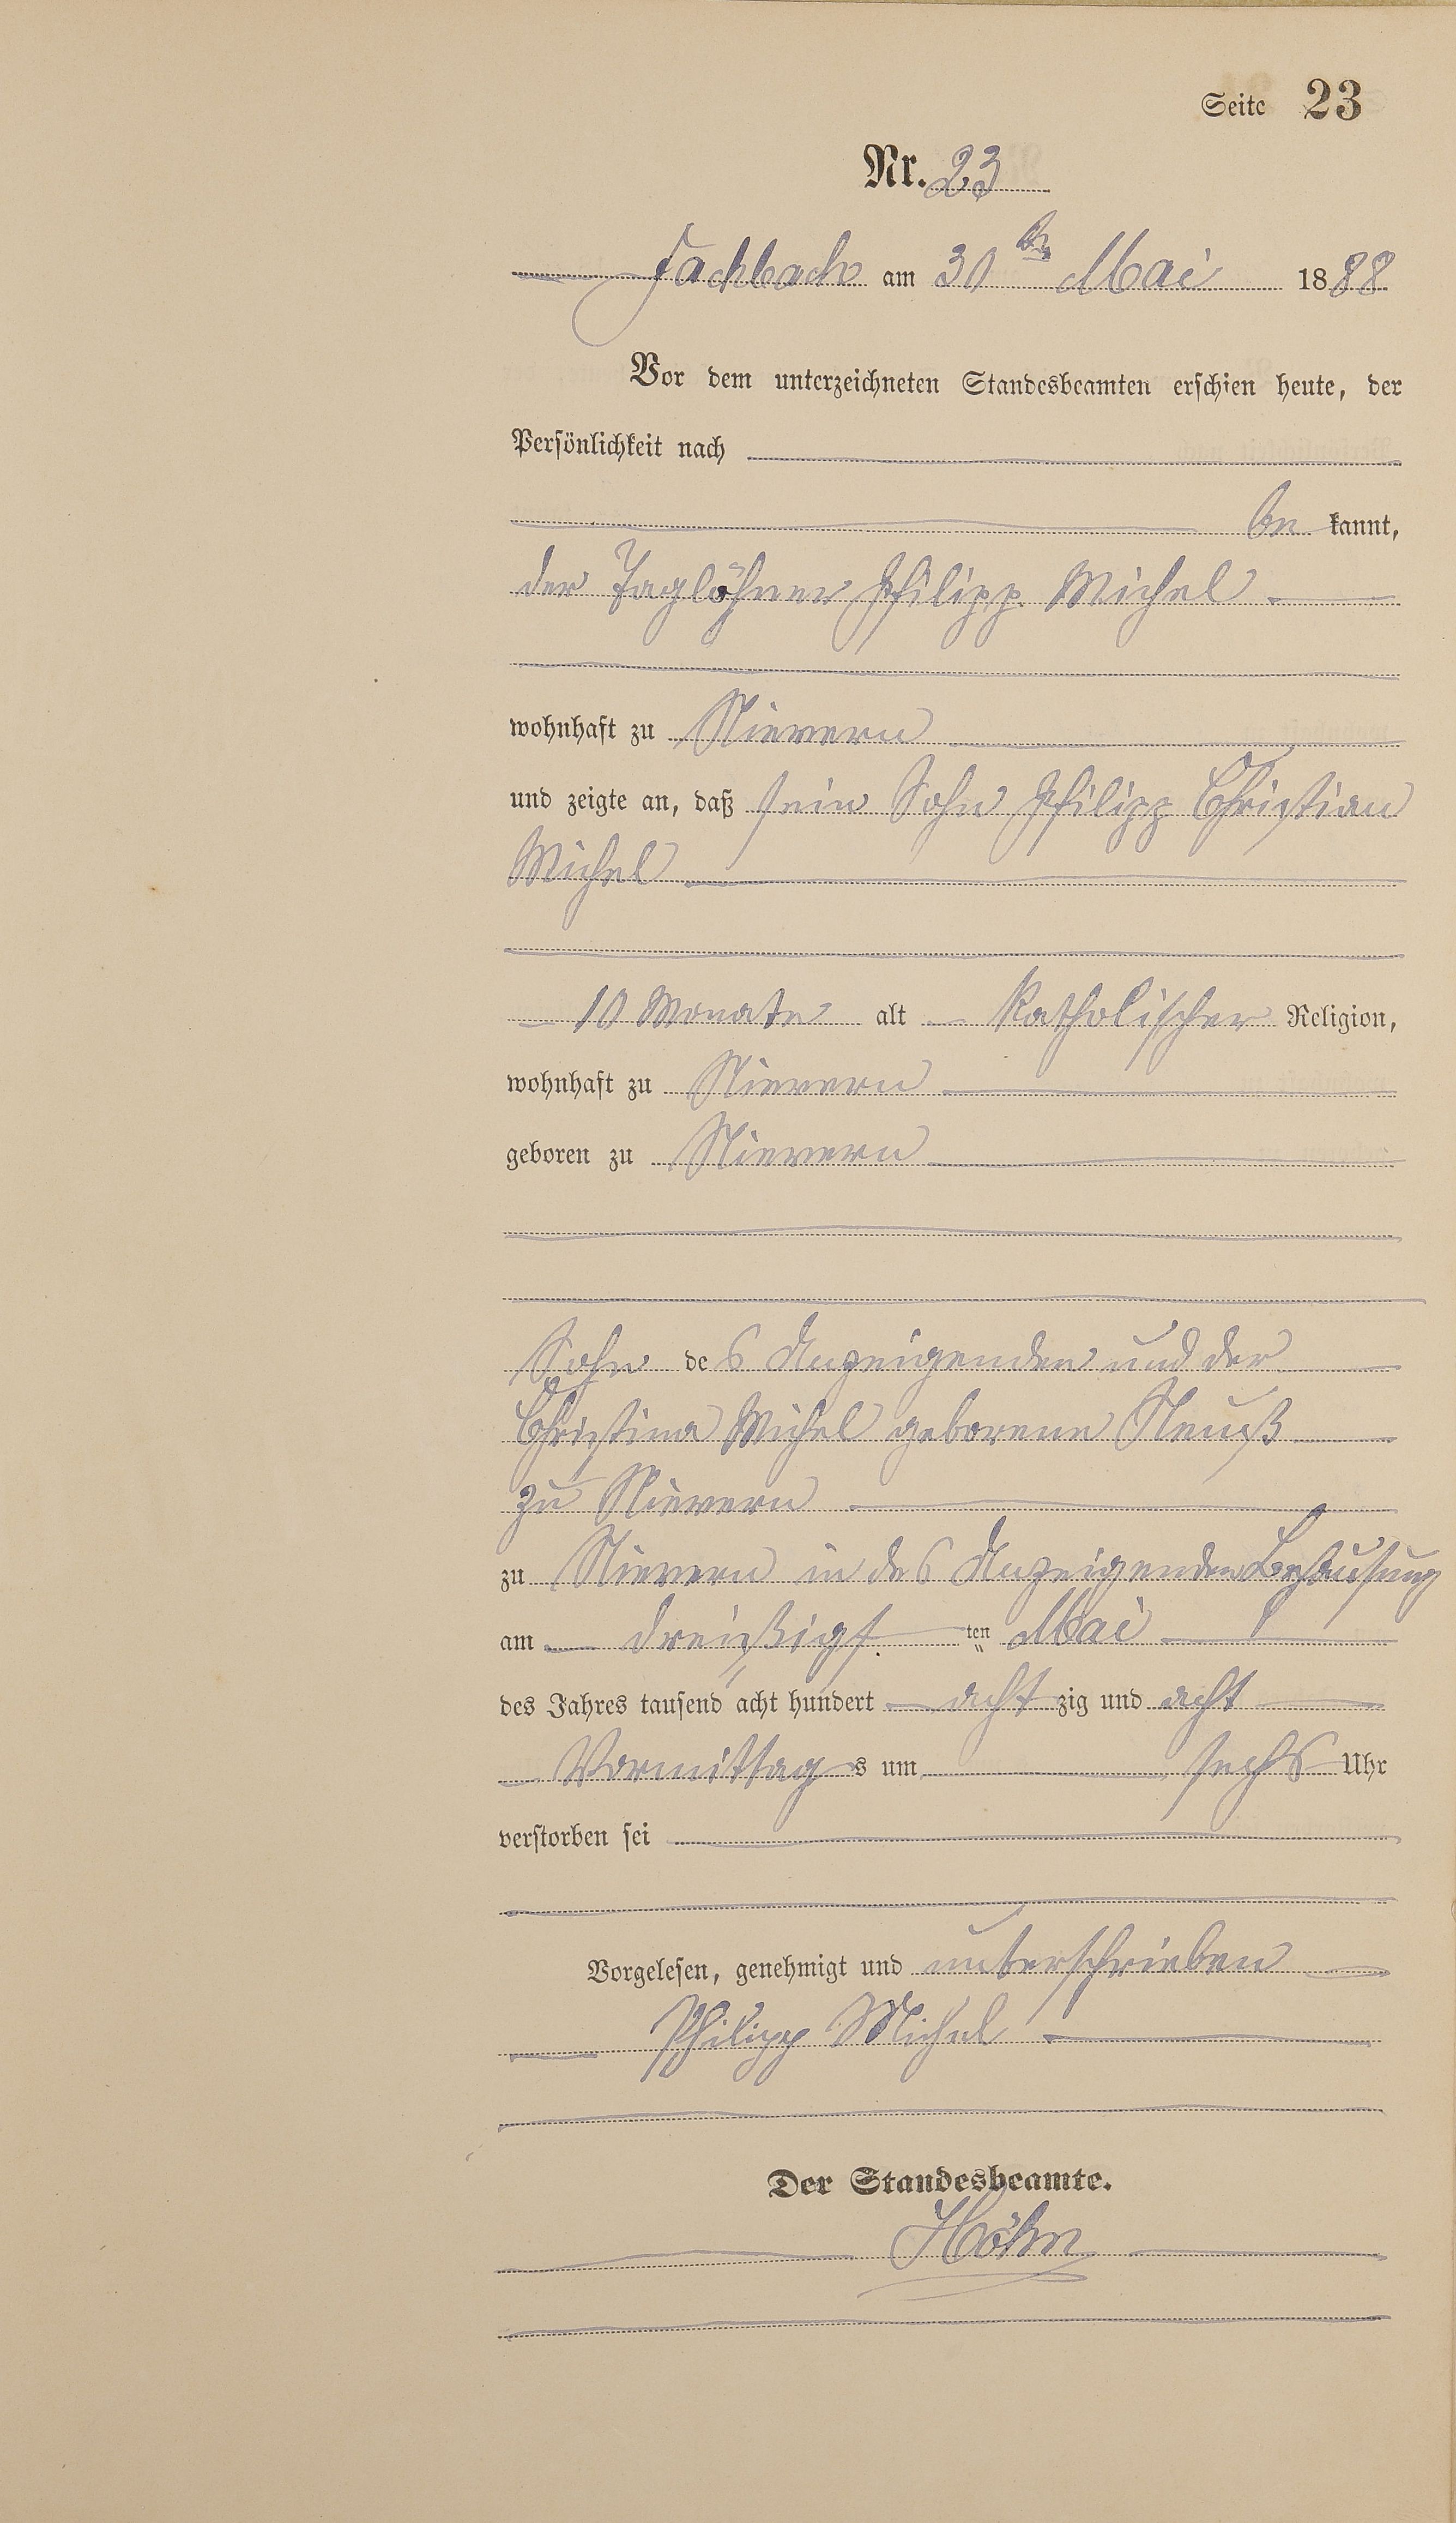 Seite 23
Nr. 23
Fachbach am 30ten Mai 1888
Vor dem unterzeichneten Standesbeamten erschien heute, der
Persönlichkeit nach
be kannt,
der Taglöhner Philipp Michel
wohnhaft zu Nievern
und zeigte an, daß sein Sohn Philipp Christian
Michel
10 Monate alt katholischer Religion,
wohnhaft zu Nievern
geboren zu Nievern
Sohn des Anzeigenden und der
Christina Michel geborene Neuß
zu Nievern
zu Nievern in des Anzeigenden Behausung
am dreißigsten Mai
des Jahres tausend acht hundert achtzig und acht
Vormittags um sechs Uhr
verstorben sei
Vorgelesen, genehmigt und unterschrieben
Philipp Michel
Der Standesbeamte.
Höhn